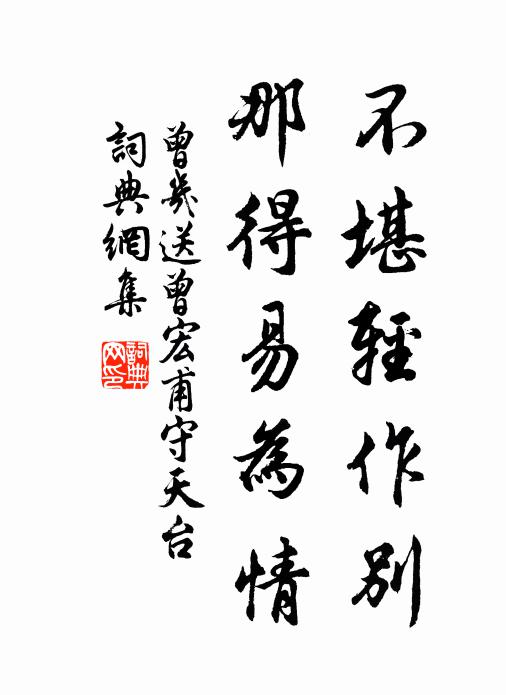 不堪輕作別
那得易為情
曾幾送曾宏甫守天台
詞典網集
詞典
网印